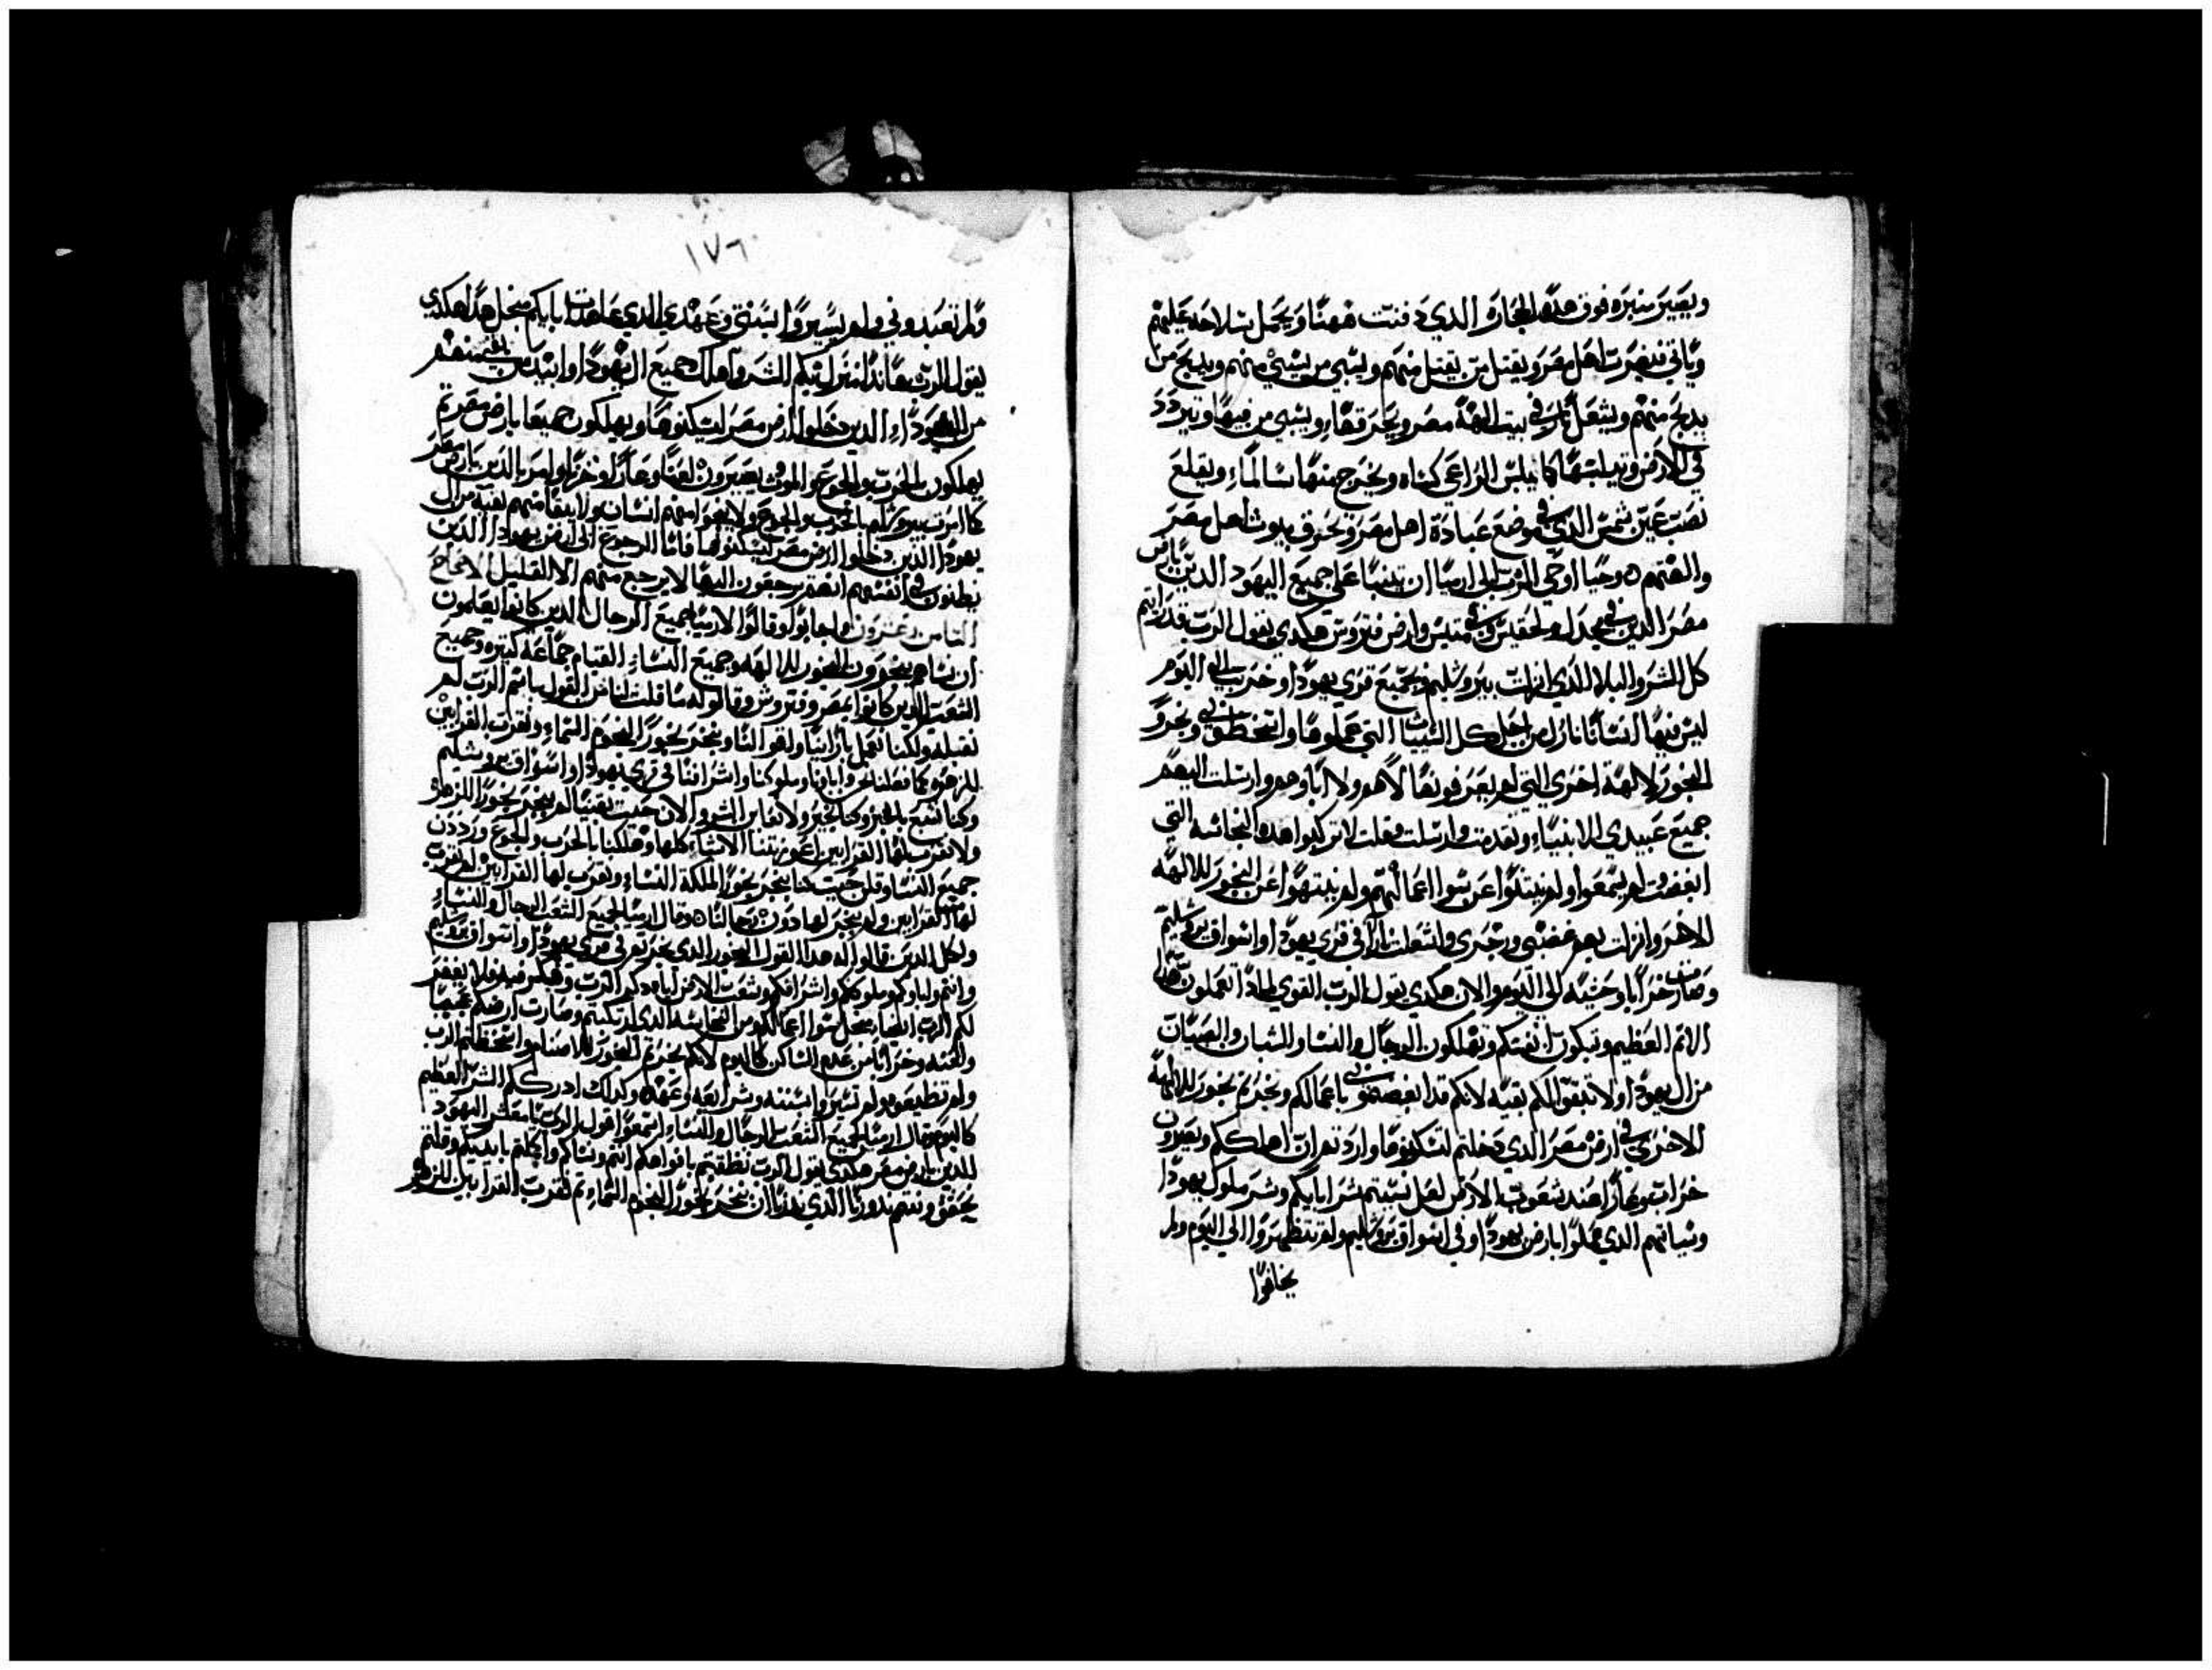 ويصير منبره فوق هذه الحجاره الذي دفنت فهنا ويحمل سلاحه عليهم
وياتي فيضرب اهل مصر ويقتل من يقتل منهم ويسبي من يسبي منهم ويدبح من
يدبح منهم ويشعل نار في بيت الهة مصر ويحرقها ويسبي من فيها ويتردد
في الارض ويلبسها كما يلبس الراعي كساه ويخرج منها سالما ويقلع
نصب عين شمس الذي في موضع عبادة اهل مصر ويحرق بيوت اهل مصر
والهتهم وحيا اوحي الرب الي ارميا ان يتنبا علي جميع اليهود الذين بارض
مصر الذين في مجدل وتحفليس وفي منيس وارض فتروس هكدي يقول الرب قد رايتم
كل الشر والبلا الذي انزلت بيروشليم وبجميع قري يهودا وخربت الي اليوم
ليس فيها انسانا نازل من اجل كل السيات التي عملوها واسخطوني وبخروا
البخور لالهة اخري التي لم يعرفونها لاهم ولا اباوهم وارسلت اليهم
جميع عبيدي الانبياء وتقدمت وارسلت وقلت لا تركبوا هذه النجاسه التي
ابغضت لم يسمعوا ولم ينتهوا عن سوا اعمالهم ولم ينتهوا عن البخور للالهه
الاخر وانزلت بهم غضبي ورجزي واشتعلت نارا في قري يهودا واسواق يروشليم
وصارت خرابا وحشه الي اليوم والان هكدي يقول الرب القوي لمادا تعملون هذا
الاثم العظيم وتبكون انفسكم وتهلكون الرجال والنسا والشبان والصبيان
من ال يهودا ولا تبقوا لكم بقيه لانكم قد اغضبتموني باعمالكم وبخرتم بخور للالهة
الاخري في ارض مصر الذي دخلتم لتسكنوها واردتم ان اهلككم وتصيرون
خرابا وعارا عند شعوب الارض لعل نسيتم شر ابايكم وشر ملوك يهودا
وسياتهم الذي عملوا بارض يهودا وفي اسواق يروشليم ولم يتطهروا الي اليوم ولم
يخافوا
١٧٦
ولم تعبدوني ولم يسيروا بسنتي وعهدي الذي عاهدت ابايكم منجل هذا هكدي
يقول الرب هاندا انزل بكم الشر واهلك جميع اليهود وابيد بقيتهم
من اليهود الذين دخلوا ارض مصر ليسكنوها ويهلكون جميعا بارض مصر ثم
يهلكون بالحرب والجوع والموت يصيرون لعنا وعارا وخزيا وامر بالذين بارض مصر
كما امرت بيروشليم بالحرب والجوع ولا ينجوا منهم انسان ولا يبقا منهم بقيه من ال
يهودا الذين دخلوا ارض مصر ليسكنوها فاما الرجوع الي ارض يهودا الذين
يظنون في انفسهم انهم يرجعون اليها لا يرجع منهم الا القليل الاصحاح
الثامن وعشرون واجابوا وقالوا لارميا جميع الرجال الذين كانوا يعلمون
ان نساهم يبخرون البخور للالهه وجميع النساء القيام جماعه كبيره وجميع
الشعب الذين كانوا بمصر وفتروس وقالوا له ما قلت لنا من القول باسم الرب لم
نقبله ولكنا نعمل براينا ولقوالنا ونبخر بخورا لنجوم السماء ونقرب القرابين
للزهره كما فعلنا نحن واباونا وملوكنا واشرافنا في قري يهودا واسواق يروشليم
وكنا نشبع بالخبز وكنا بخير ولا نعاين الشر والان حيث بقينا لم نبخر بخورا للزهره
ولا نقرب لها القرابين اعوزتنا الاشياء كلها وهلكنا بالحرب والجوع ورددن
جميع النسا وقلن حيث كنا نبخر بخورا لملكة السماء ونقرب لها القرابين ولم نقرب
لها القرابين ولم نبخر لها دون رجالنا وقال ارميا لجميع الشعب الرجال والنساء
ولكل الذين قالوا له هذا القول البخور الذي بخرتم في قري يهودا واسواق يروشليم
وانتم واباوكم وملوككم واشرافكم وشعب الارض
لكم الرب اثمها منجل سوا اعمالكم ومن النجاسه الذي ارتكبتم وصارت ارضكم عجبا
ولعنه وخرابا من عدم الساكن كاليوم لانكم بخرتم البخور للاصنام واسخطتم الرب
ولم تطيعوه ولم تسيروا بسننه وشرايعه وعهده وكدلك ادرككم الشر العظيم
كاليوم وقال ارميا لجميع الشعب الرجال والنساء اسمعوا قول الرب يا معشر اليهود
الذين بارض مصر هكدي يقول الرب نطقتم بافواهكم انتم ونساكم واكملتم بايديكم وقلتم
نحقق ونتم ندورنا الذي ندرنا ان نبخر بخورا لنجوم السماء ثم نقرب القرابين للزهره